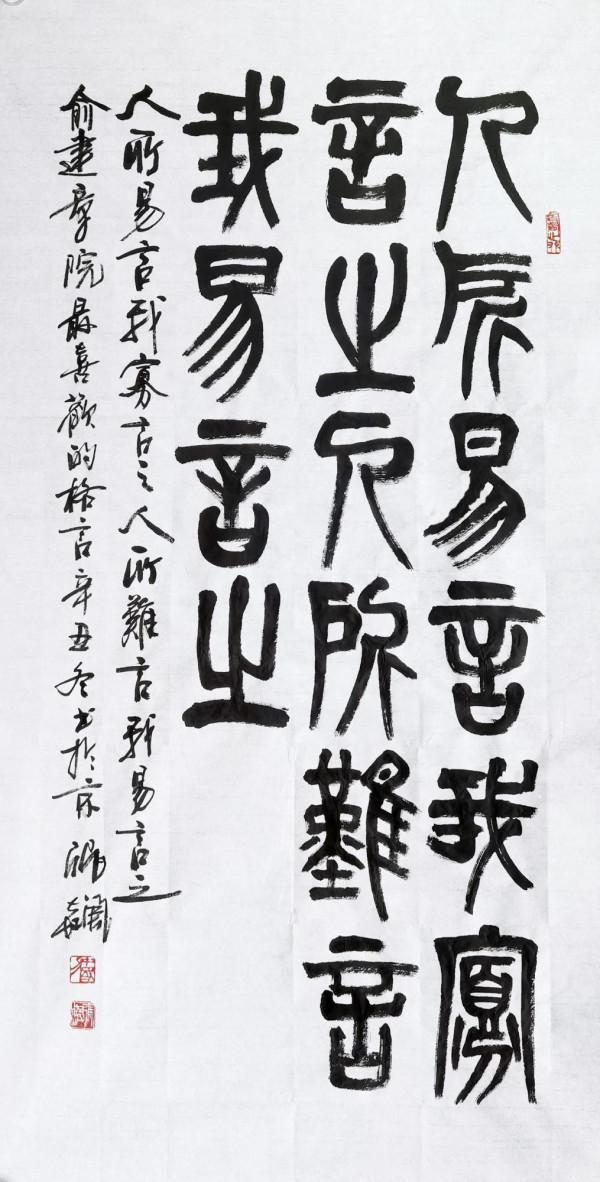 人所易言我寡
言之人所難言
我易言之
人所易言我寡言之人所難言我易言之
俞建章院最喜歡的格言辛丑冬书於京